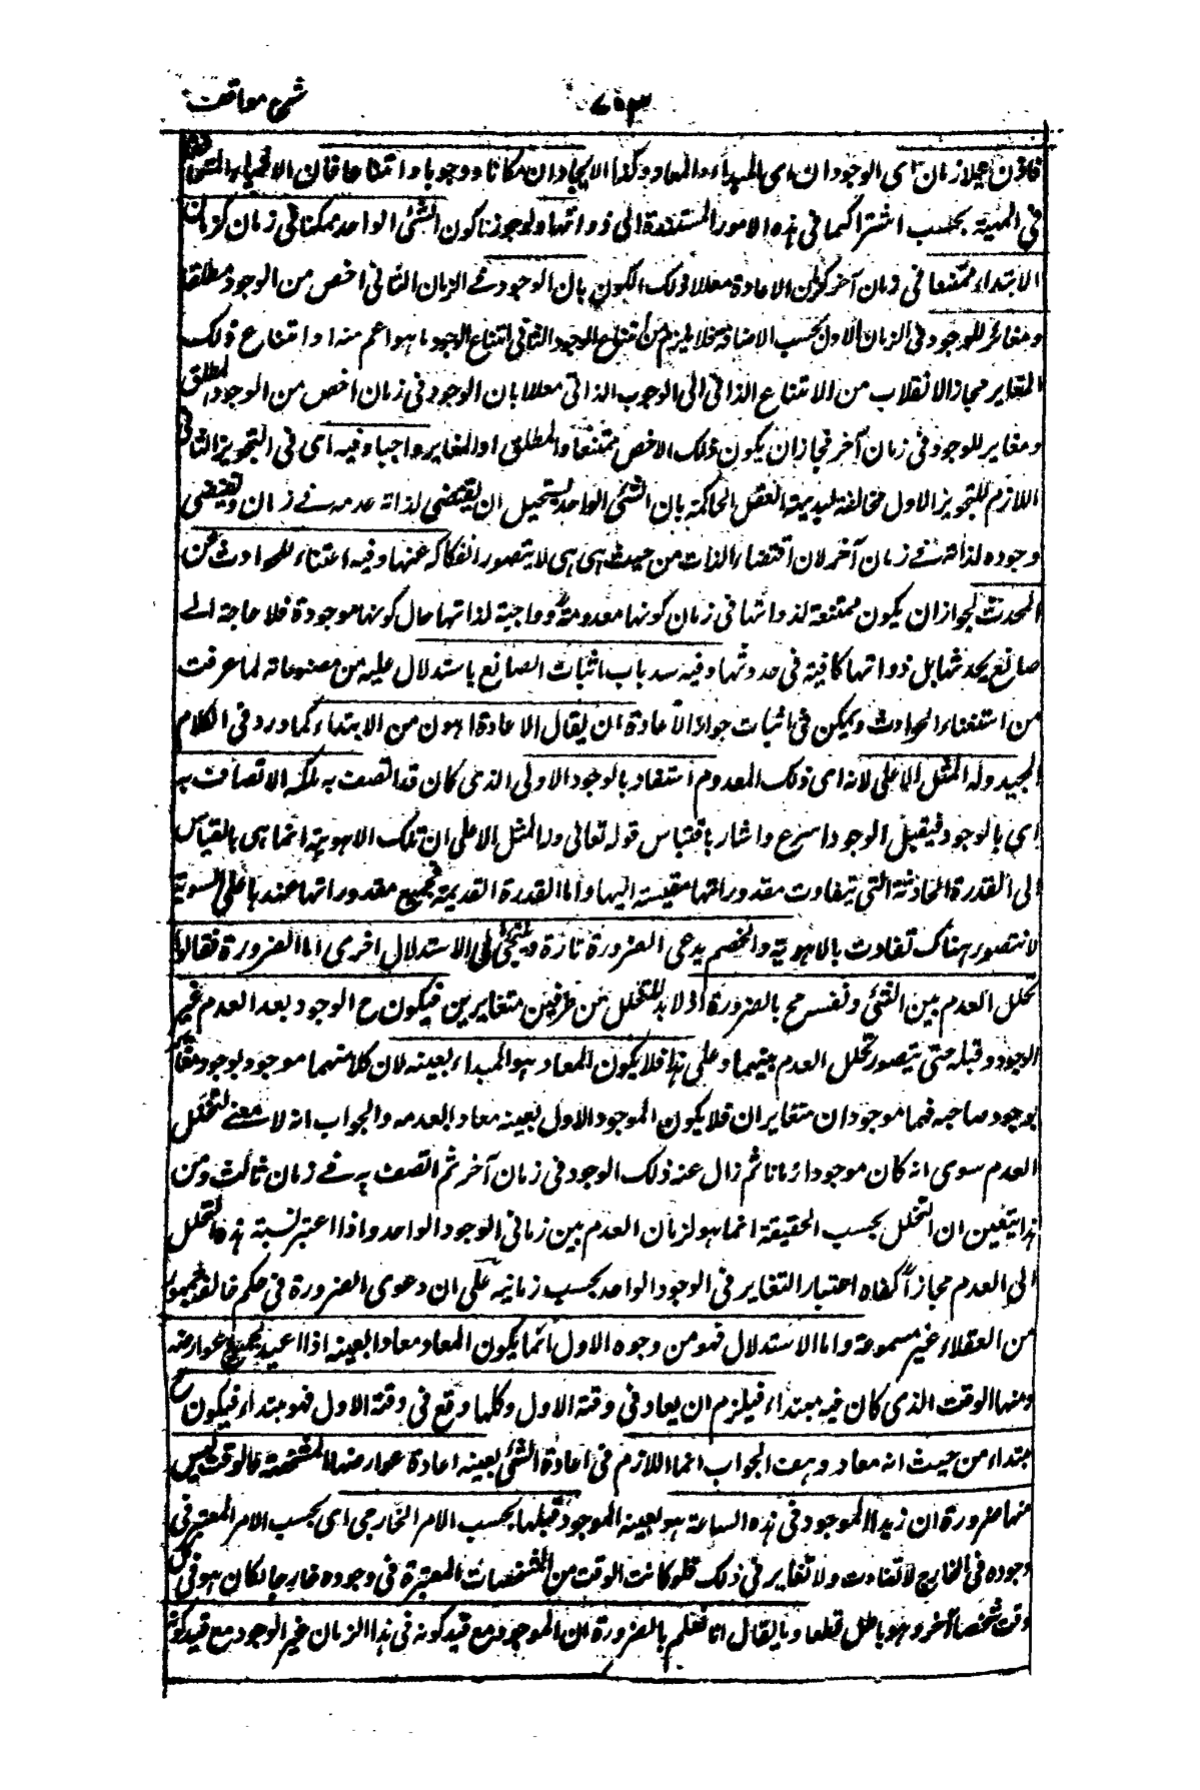 شرح مواقف
٧٠٣
فاذن يتلازمان اى الوجودان اى المبدأ والمعاد وكذا الايجادان امكانا ووجوبا وامتناعا فان الاشياء المتوافقة
فى المهية يجب اشتراكها فى هذه الامور المستندة الى ذواتها ولو جوزنا كون الشئ الواحد ممكنا فى زمان كزمان
الابتداء ممتنعا فى زمان آخر كزمان الاعادة معللا ذلك الكون بان الوجود فے الزمان الثانى اخص من الوجود مطلقا
ومغائر للوجود فى الزمان الاول بحسب الاضافة فلا يلزم من امتناع الوجود الثانى امتناع الوجود ما هو اعم منه او امتناع ذلك
المغاير لجاز الانقلاب من الامتناع الذاتى الى الوجوب الذاتى معللا بان الوجود فى زمان اخص من الوجود المطلق
ومغاير للوجود فى زمان آخر فجاز ان يكون ذلك الاخص ممتنعا والمطلق او المغاير واجبا وفيه اى فى التجويز الثانى
اللازم للتجويز الاول مخالفة لبديهة العقل الحاكمة بان الشئ الواحد يستحيل ان يقتضى لذاته عدمه فے زمان ويقتضى
وجوده لذاته فے زمان آخر لان اقتضاء الذات من حيث هى هى لا يتصور انفكاكه عنها وفيه اغناء للحوادث عن
المحدث لجواز ان يكون ممتنعة لذواتها فى زمان كونها معدومة وواجبة لذاتها حال كونها موجودة فلا حاجة الے
صانع يحدثها بل ذواتها كافية فى حدوثها وفيه سد باب اثبات الصانع باستدلال عليه من مصنوعاته لما عرفت
من استغناء الحوادث ويمكن فى اثبات جواز الاعادة ان يقال الاعادة اهون من الابتداء كما ورد فى الكلام
المجيد وله المثل الاعلى لانه اى ذلك المعدوم استفاد بالوجود الاولى الذى كان قد اتصف به ملكة الاتصاف به
اى بالوجود فيقبل الوجود اسرع واشار باقتباس قوله تعالى وله المثل الاعلى ان تلك الاهونية انما هى بالقياس
الى القدرة الحادثة التى يتفاوت مقدوراتها مقيسة اليها واما القدرة القديمة فجميع مقدوراتها عندها على السوية
لا نتصور هناك تفاوت بالاهونية والخصم يدعى الضرورة تارة ويلتجئ الى الاستدلال اخرى اما الضرورة فقالوا
تخلل العدم بين الشئ ونفسه مح بالضرورة اذ لا بد للتخلل من طرفين متغايرين فيكون ح الوجود بعد العدم غير
الوجود وقبله حتى يتصور تخلل العدم بينهما وعلى هذا فلا يكون المعاد هو المبداء بعينه لان كلا منهما موجود بوجود مغاير
بوجود صاحبه فهما موجودان متغايران فلا يكون الموجود الاول بعينه معادا بعدمه والجواب انه لا معنے لتخلل
العدم سوى انه كان موجودا زمانا ثم زال عنه ذلك الوجود فى زمان آخر ثم اتصف به فے زمان ثالث ومن
هذا يتبين ان التخلل بحسب الحقيقة انما هو لزمان العدم بين زمانى الوجود الواحد واذا اعتبر نسبة هذا التخلل
الى العدم مجازا كفاه اعتبار التغاير فى الوجود الواحد بحسب زمانيه على ان دعوى الضرورة فى حكم خالفه جمهور
من العقلاء غير مسموعة واما الاستدلال فهو من وجوه الاول انما يكون المعاد معادا بعينه اذا اعيد بجميع عوارضه
ومنها الوقت الذى كان فيه مبتداء فيلزم ان يعاد فى وقته الاول وكلما وقع فى وقته الاول فهو مبتداء فيكون ح
مبتداء من حيث انه معاد وهف الجواب انما اللازم فى اعادة الشئ بعينه اعادة عوارضه المشخصة والوقت ليس
منها ضرورة ان زيدا الموجود فى هذه الساعة هو بعينه الموجود قبلها بحسب الامر الخارجى اى بحسب الامر المعتبر فى
وجوده فى الخارج لا تفاوت ولا تغاير فى ذلك فلو كانت الوقت من المشخصات المعتبرة فى وجوده خارجا لكان هو فى كل
وقت شخصا آخر وهو باطل قطعا وما يقال انا نعلم بالضرورة ان الموجود مع قيد كونه فى هذا الزمان غير الموجود مع قيد كونه